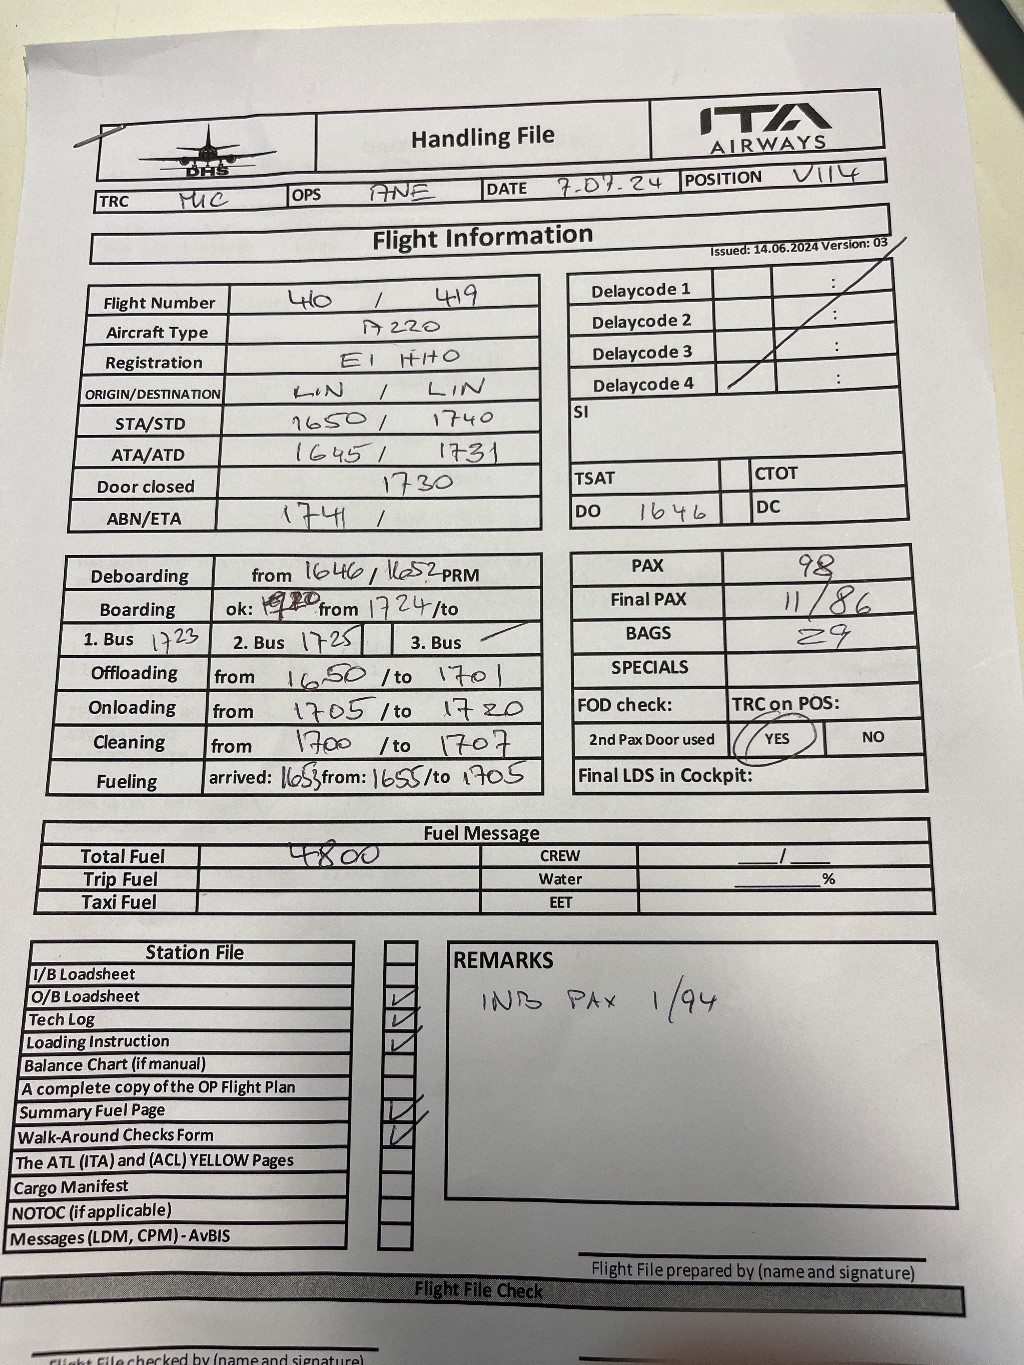 DHS Handling File ITA AIRWAYS
TRC MIC OPS ANE DATE 7.07.24 POSITION V114
Flight Information
Issued: 14.06.2024 Version: 03
Flight Number 410 / 419
Aircraft Type A220
Registration EI HHO
ORIGIN/DESTINATION LIN / LIN
STA/STD 1650 / 1740
ATA/ATD 1645 / 1731
Door closed 1730
ABN/ETA 1741 /
Delaycode 1 :
Delaycode 2 :
Delaycode 3 :
Delaycode 4 :
SI
TSAT CTOT
DO 1646 DC
Deboarding from 1646 / 1652 PRM
Boarding ok: from 1724 /to
1. Bus 1723 2. Bus 1725 3. Bus
Offloading from 1650 /to 1701
Onloading from 1705 /to 1720
Cleaning from 1700 /to 1707
Fueling arrived: 1653 from: 1655 /to 1705
PAX 98
Final PAX 11/86
BAGS 29
SPECIALS
FOD check: TRC on POS:
2nd Pax Door used YES NO
Final LDS in Cockpit:
Fuel Message
Total Fuel 4800 CREW ____/____
Trip Fuel Water ________%
Taxi Fuel EET
Station File
I/B Loadsheet
O/B Loadsheet ✓
Tech Log ✓
Loading Instruction ✓
Balance Chart (if manual)
A complete copy of the OP Flight Plan
Summary Fuel Page ✓
Walk-Around Checks Form ✓
The ATL (ITA) and (ACL) YELLOW Pages
Cargo Manifest
NOTOC (if applicable)
Messages (LDM, CPM) - AvBIS
REMARKS
INB PAX 1/94
Flight File prepared by (name and signature)
Flight File Check
Flight File checked by (name and signature)